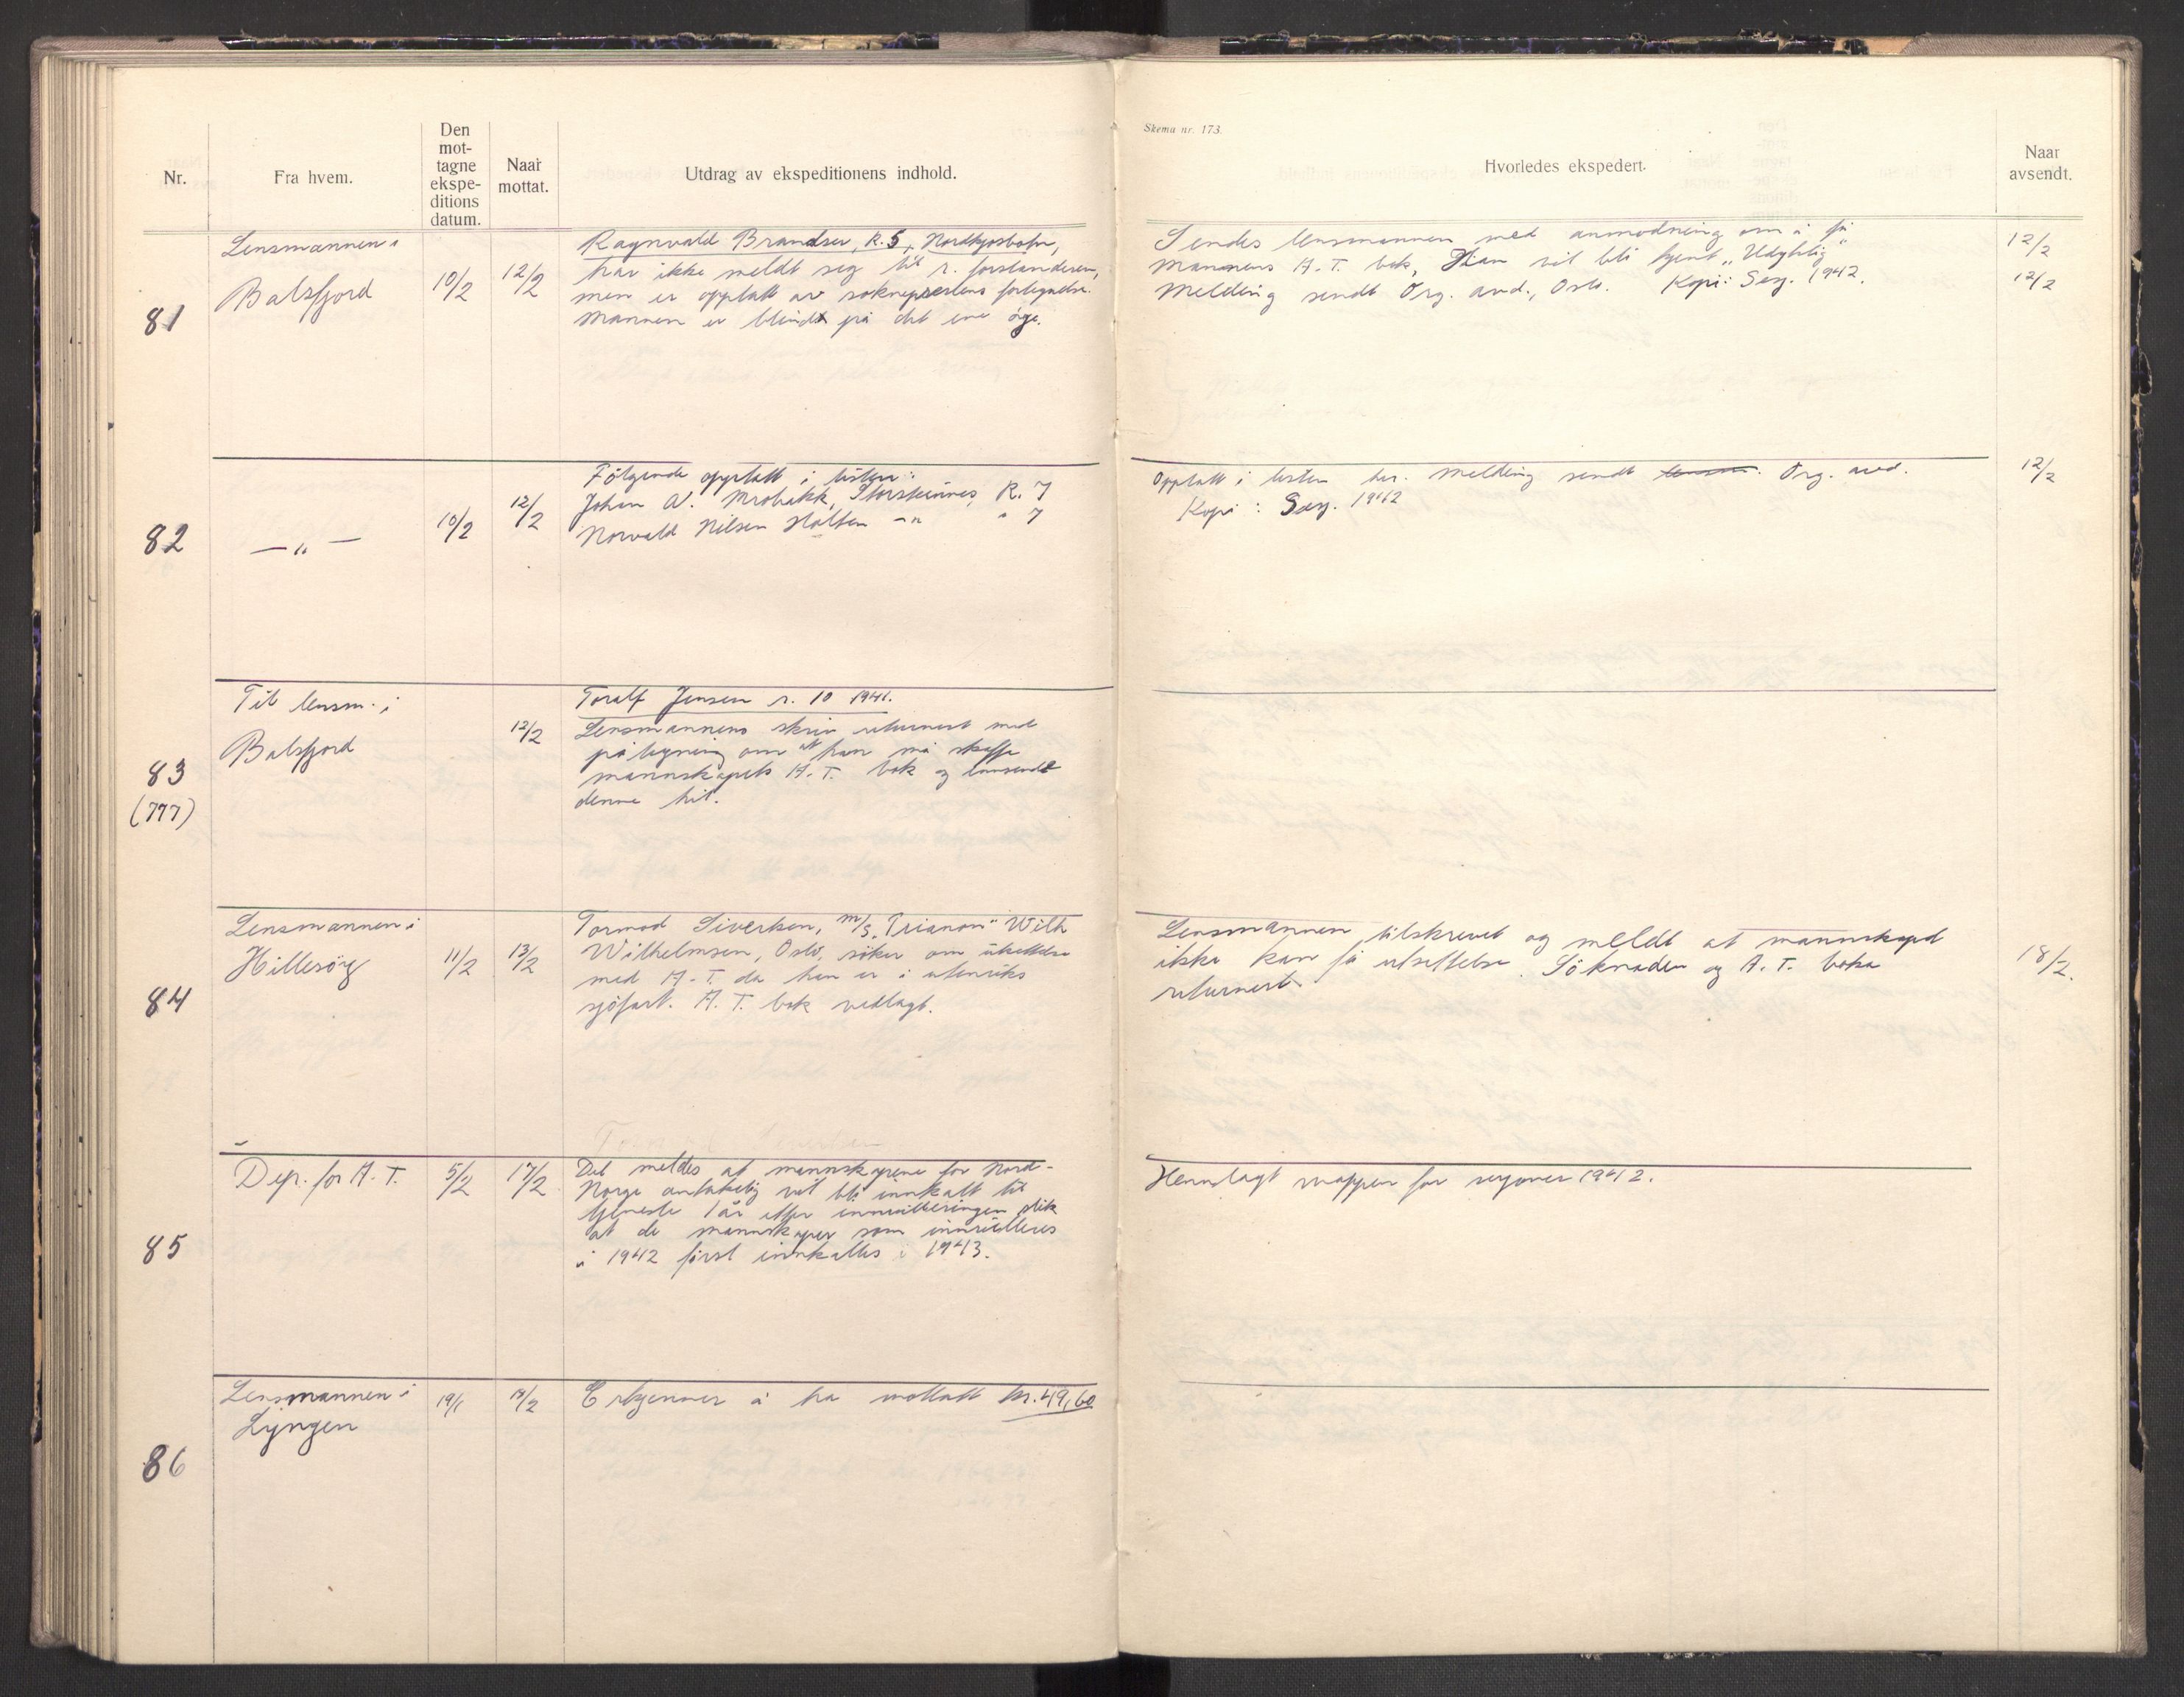 Skema nr. 173.
Nr.
Fra hvem.
Den
mot-
tagne
ekspe-
ditions
datum.
Naar
mottat.
Utdrag av ekspeditionens indhold.
Hvorledes ekspedert.
Naar
avsendt.
81
Lensmannen i
Balsfjord
10/2
12/2
Ragnvald Brandser, R. 5, Nordkjosbotn,
har ikke meldt seg til r. forstanderen,
men er opptatt av sokneprestens fortegnelse.
Mannen er blind på det ene öye.
Sendes lensmannen med anmodning om å få
mannens A. T. bok, Han vil bli kjent „Udyktig"
Melding sendt Org. avd., Oslo. Kopi: Sesj. 1942.
12/2
12/2
82
— „ —
10/2
12/2
Fölgende opptatt i listen:
Johan A. Mrobakk, Storsteinnes, R. 7
Norvald Nilsen Holten -"- " 7
Opptatt i listen her. Melding sendt Org. avd.
Kopi: Sesj. 1942
12/2
83
(777)
Til lensm. i
Balsfjord
12/2
Toralf Jensen r. 10 1941.
Lensmannens skriv returnert med
påtegning om at han må skaffe
mannskapets A. T. bok og innsende
denne hit.
84
Lensmannen i
Hillesöy
11/2
13/2
Tormod Sivertsen, m/s „Trianon" Wilh
Wilhelmsen, Oslo, söker om utsettelse
med A. T. da han er i utenriks
sjöfart. A. T. bok vedlagt.
Lensmannen tilskrevet og meldt at mannskapet
ikke kan få utsettelse. Söknaden og A. T. boka
returnert.
18/2.
85
Dep. for A. T.
5/2
17/2
Det meldes at mannskapene for Nord-
Norge antakelig vil bli innkalt til
tjeneste 1 år etter innrulleringen slik
at de mannskaper som innrulleres
i 1942 först innkalles i 1943.
Henlagt mappen for sesjoner 1942.
86
Lensmannen i
Lyngen
19/1
17/2
Erkjenner å ha mottatt kr. 49,60